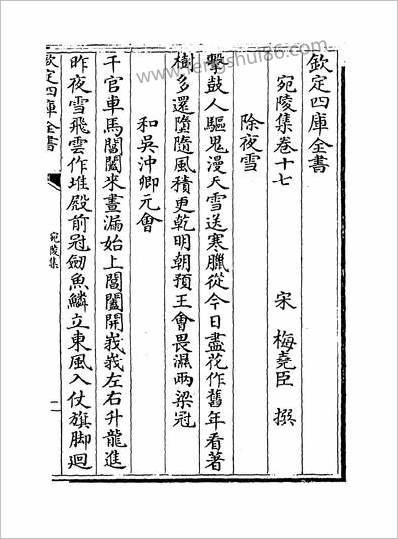 欽定四庫全書
宛陵集卷十七
宋 梅堯臣 撰
除夜雪
擊鼓人驅鬼漫天雪送寒臘從今日盡花作舊年看著
樹多還墮隨風積更乾明朝預王會畏濕兩梁冠
和吳沖卿元會
千官車馬闐闐來晝漏始上閶闔開峩峩左右升龍進
昨夜雪飛雲作堆殿前冠劒魚鱗立東風入仗旗脚迴
欽定四庫全書
宛陵集
一
www.fengshui86.com